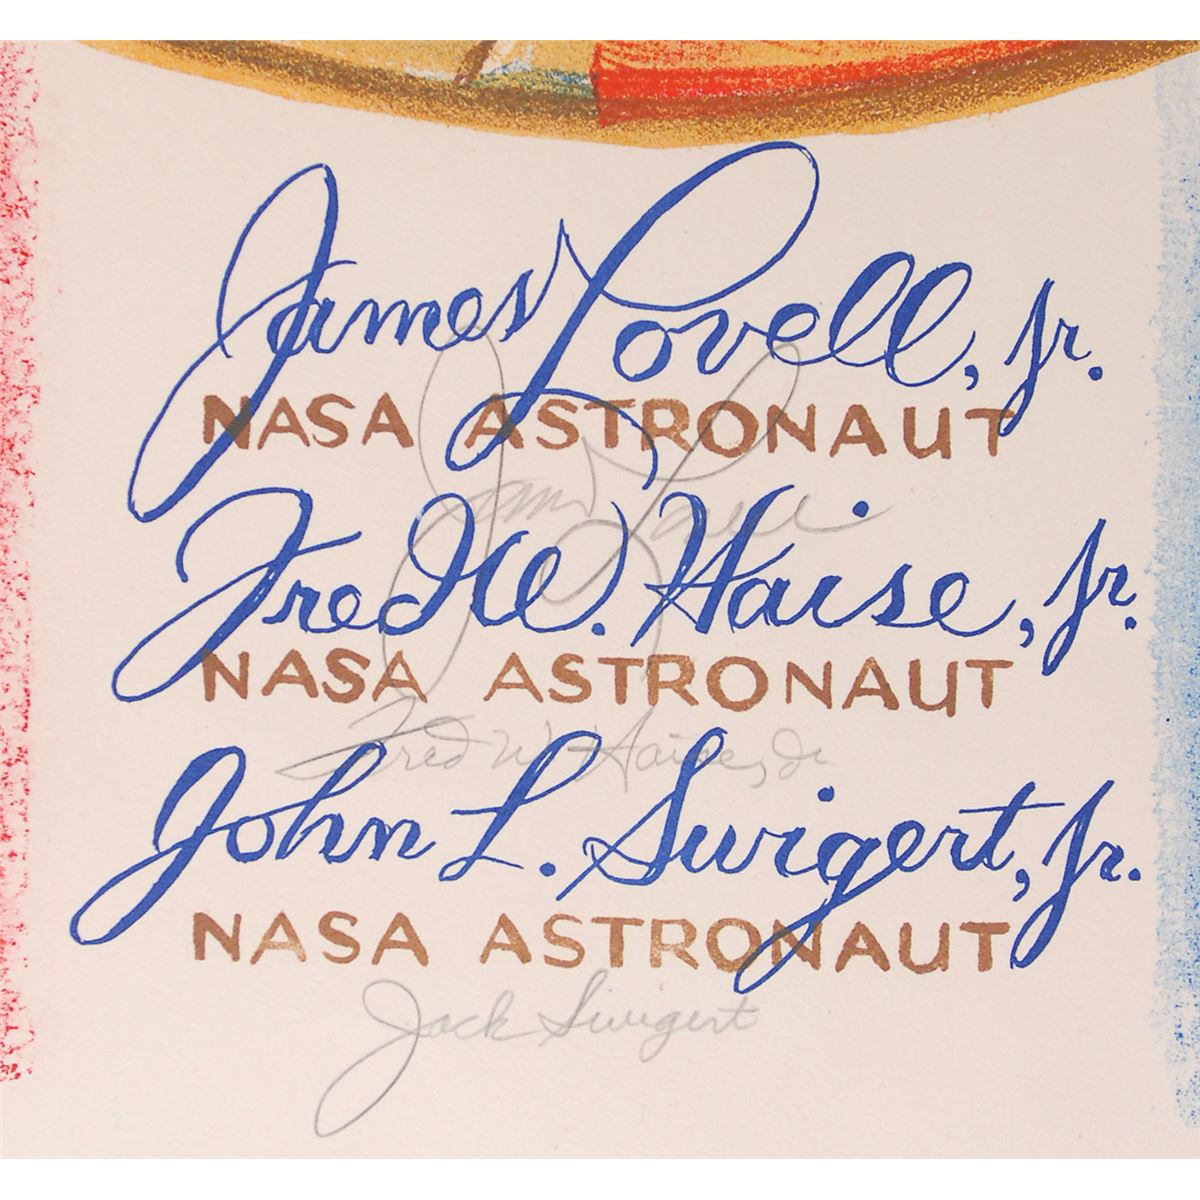 James Lovell, Jr.
NASA ASTRONAUT
James Lovell
Fred W. Haise, Jr.
NASA ASTRONAUT
Fred W. Haise, Jr
John L. Swigert, Jr.
NASA ASTRONAUT
Jack Swigert